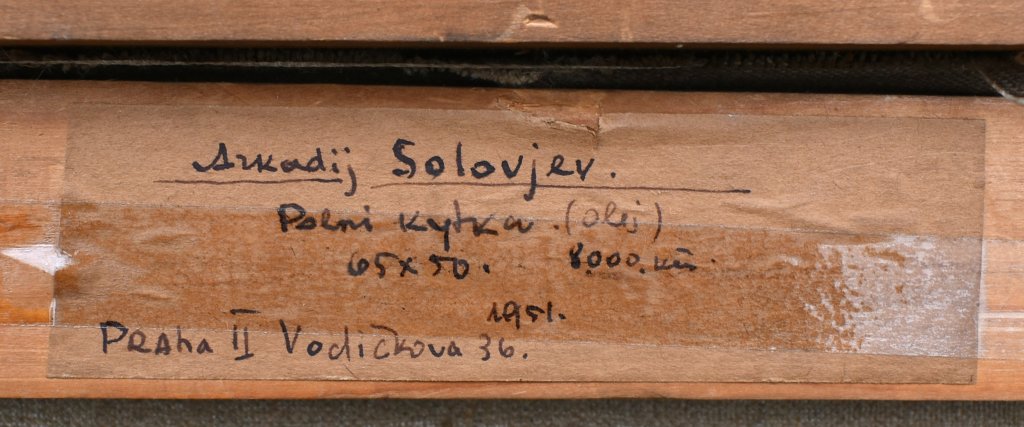 Arkadij Solovjev.
Polni kytka. (olej)
65x50. 8000 kčs.
1951.
Praha II Vodičkova 36.